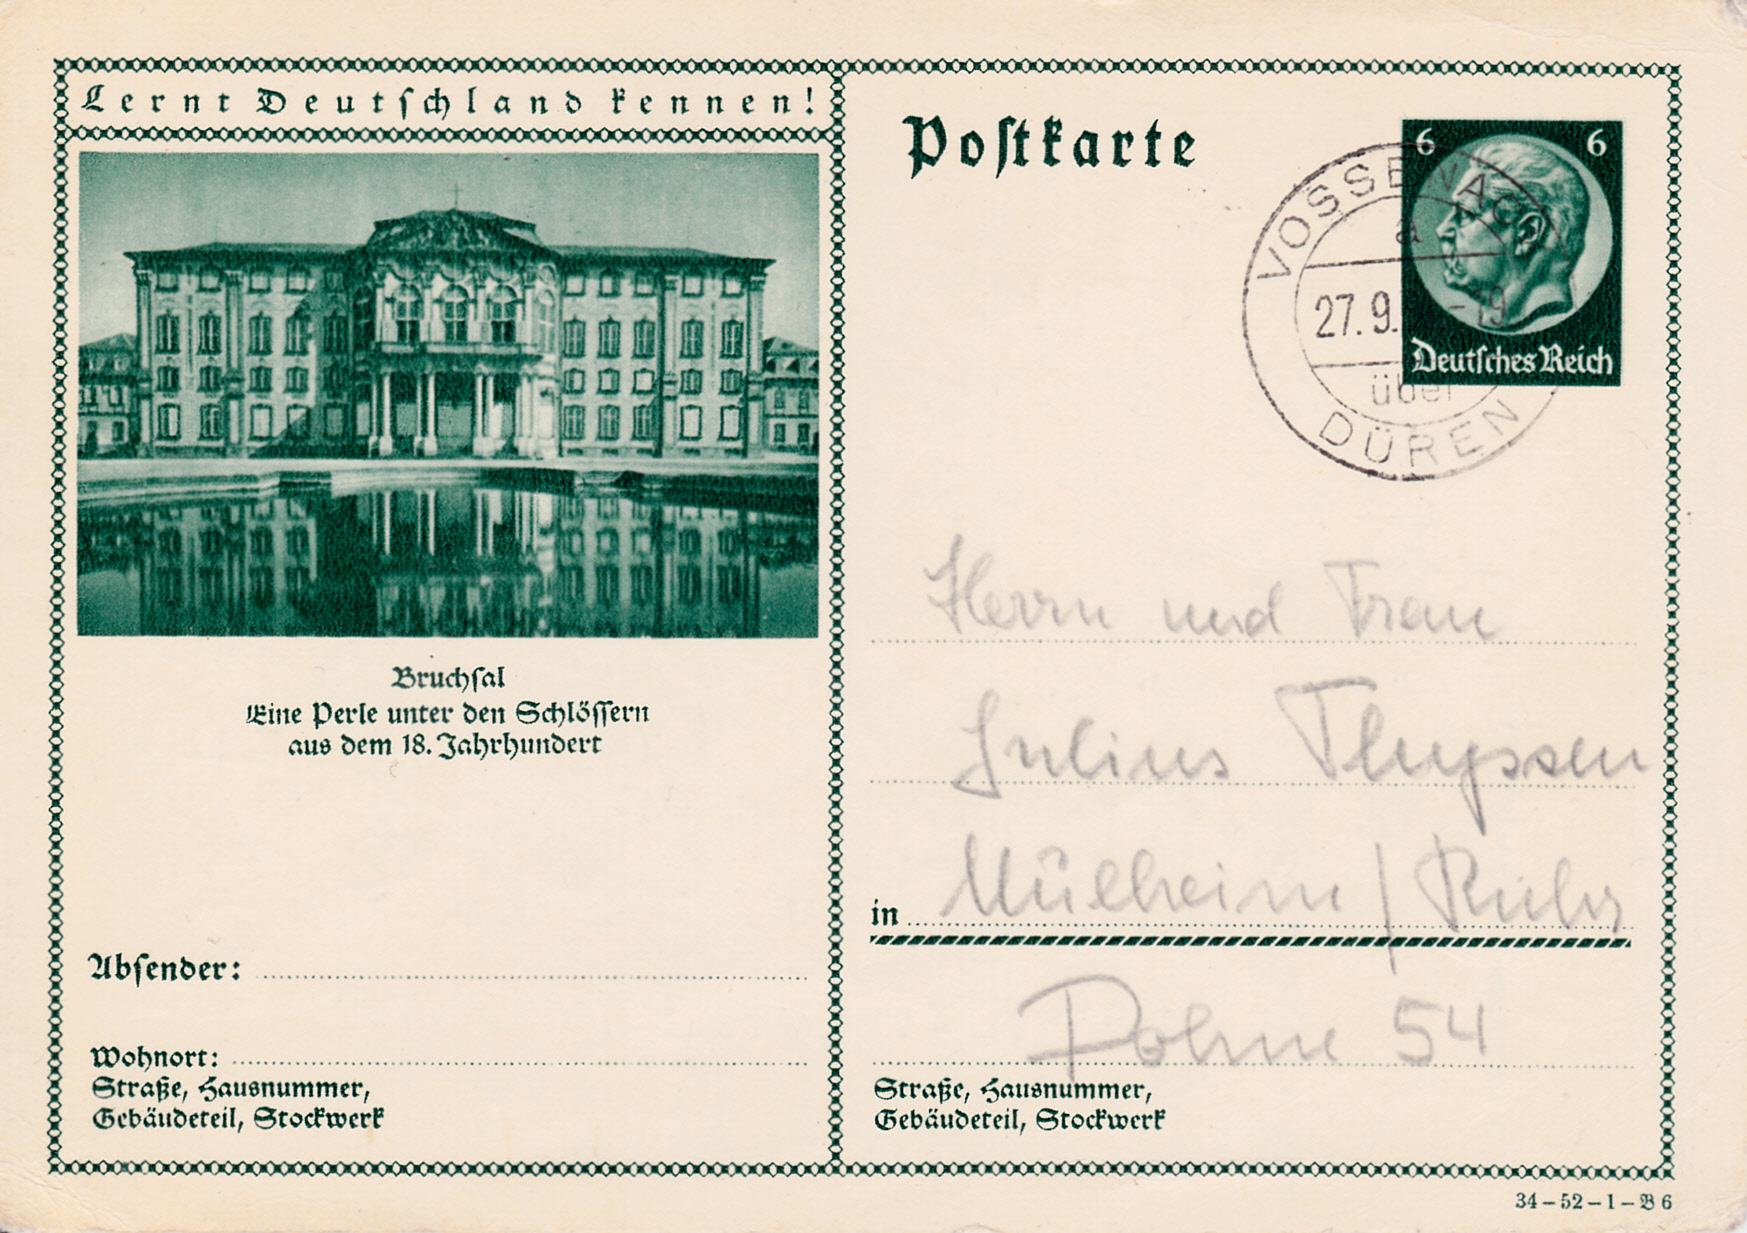 Lernt Deutschland kennen!
Bruchsal
Eine Perle unter den Schlössern
aus dem 18. Jahrhundert
Absender:
Wohnort:
Straße, Hausnummer,
Gebäudeteil, Stockwerk
Postkarte
6 6
Deutsches Reich
VOSSENACK
a
27.9. -19
über
DÜREN
Herrn und Frau
Julius Thyssen
in Mülheim / Ruhr
Dohne 54
Straße, Hausnummer,
Gebäudeteil, Stockwerk
34-52-1-B 6